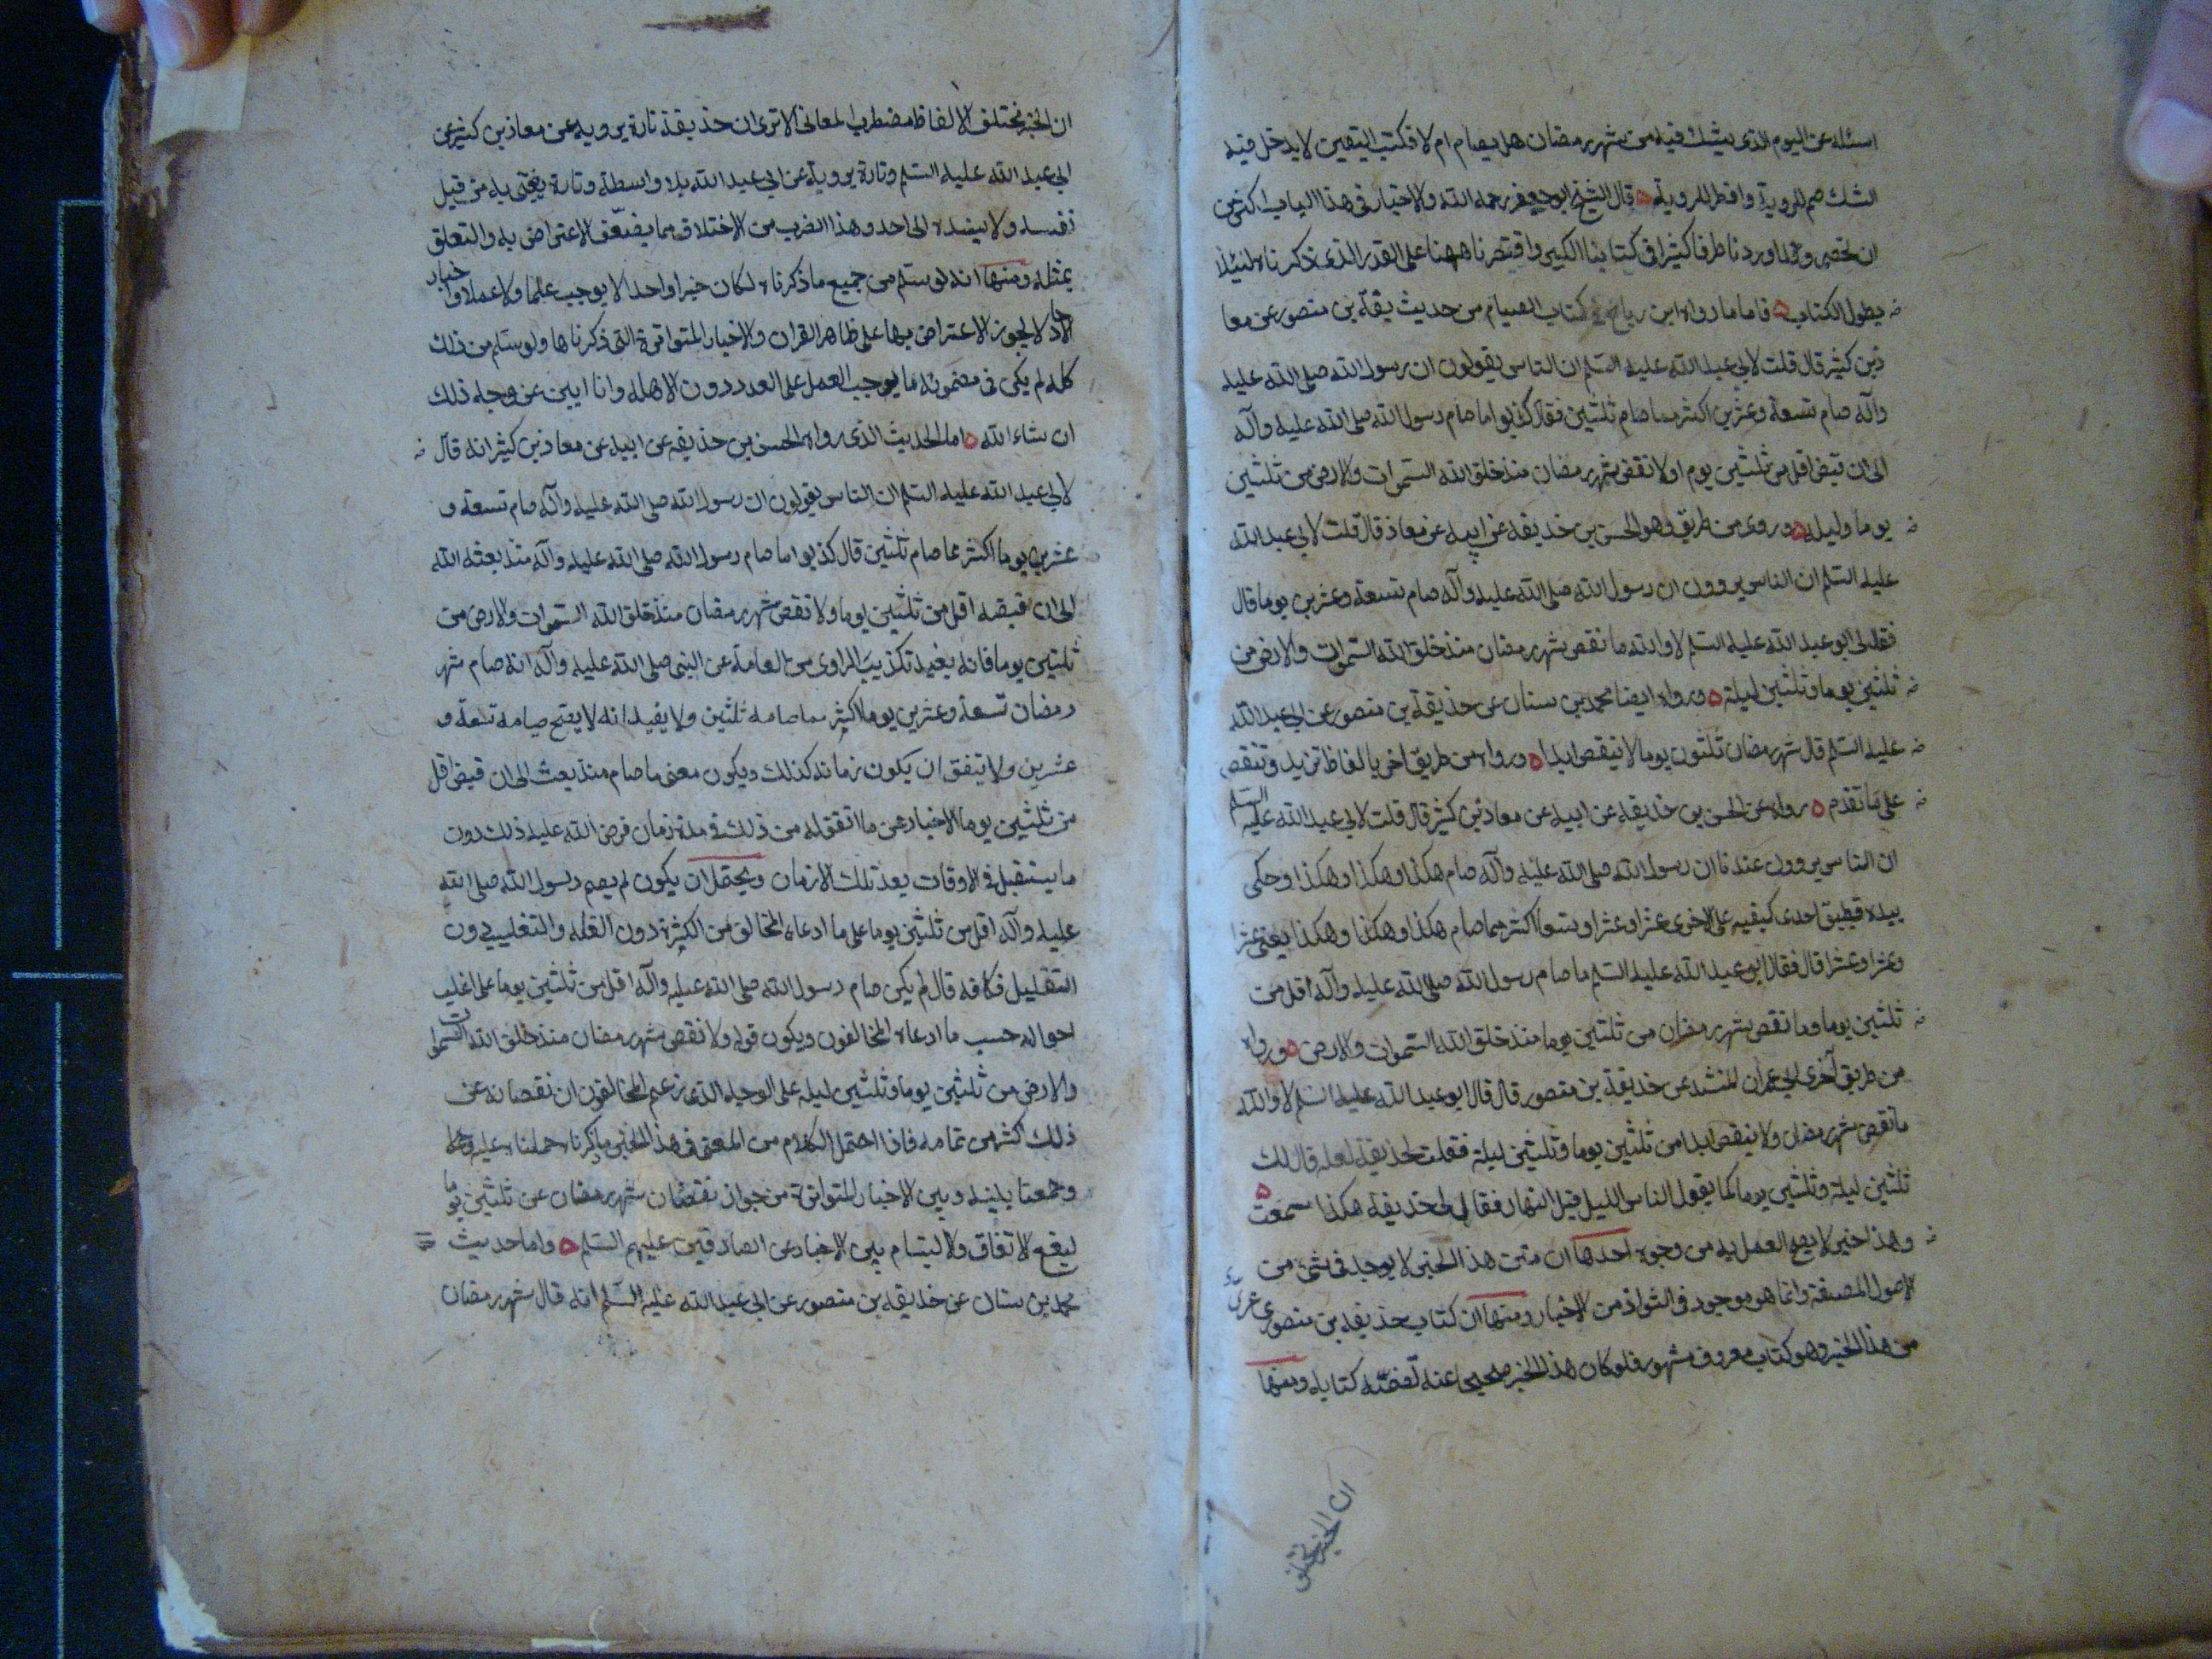 اسئله عن اليوم الذى يشك فيه من شهر رمضان هل يصام ام لا فكتب اليقين لا يدخل فيه
الشك صم للروية وافطر للروية ه قال الشيخ ابو جعفر رحمه الله والاخبار فى هذا الباب اكثر من
ان تحصى وقد اوردنا طرفا كثيرا فى كتابنا الكبير واقتصرنا ههنا على القدر الذى ذكرناه لئلا
يطول الكتاب ه فاما ما رواه ابن رباح فى كتاب الصيام من حديث يقة بن منصور عن معا
ذ بن كثير قال قلت لابى عبد الله عليه السلم ان الناس يقولون ان رسول الله صلى الله عليه
وآله صام تسعة وعشرين اكثر مما صام ثلثين فقال كذبوا ما صام رسول الله صلى الله عليه وآله
الى ان قبض اقل من ثلثين يوم اولا نقض شهر رمضان منذ خلق الله السموات والارض من ثلثين
يوما وليله ه وروى من طريق وهو الحسن بن حذيفه عن ابيه عن معاذ قال قلت لابى عبد الله
عليه السلم ان الناس يروون ان رسول الله صلى الله عليه وآله صام تسعة وعشرين يوما قال
فقال لى ابو عبد الله عليه السلم لا والله ما نقص شهر رمضان منذ خلق الله السموات والارض من
ثلثين يوما وثلثين ليلة ه ورواه ايضا محمد بن سنان عن حذيفة بن منصور عن ابى عبد الله
عليه السلم قال شهر رمضان ثلثون يوما لا ينقص ابدا ه ورواه من طريق اخر بالفاظ تزيد وتنقص
على ما تقدم ه رواه عن الحسن بن حذيفه عن ابيه عن معاذ بن كثير قال قلت لابى عبد الله عليه السلم
ان الناس يروون عندنا ان رسول الله صلى الله عليه وآله صام هكذا وهكذا وهكذا وحكى
بيده قيطبق احدى كيفيه على الاخرى عشرا وعشرا وتسعا اكثر مما صام هكذا وهكذا وهكذا يعنى عشرا
وعشرا وعشرا قال فقال ابو عبد الله عليه السلم ما صام رسول الله صلى الله عليه وآله اقل من
ثلثين يوما وما نقص شهر رمضان من ثلثين يوما منذ خلق الله السموات والارض ه ورواه
من طريق آخرى ابى عمران المنشد عن حذيفة بن منصور قال قال ابو عبد الله عليه السلم لا والله
ما نقص شهر رمضان ولا ينقص ابدا من ثلثين يوما وثلثين ليلة فقلت لحذيفة لعله قال لك
ثلثين ليلة وثلثين يوما كما يقول الناس الليل قبل النهار فقال لى حذيفة هكذا سمعت ه
وهذا خبر لا يصح العمل به من وجوه احدها ان متن هذا الخبر لا يوجد فى شىء من
الاصول المصنفة وانما هو موجود فى الشواذ من الاخبار ومنها ان كتاب حذيفه بن منصور عرى
من هذا الخبر وهو كتاب معروف مشهور فلو كان هذا الخبر صحيحا عنه لضمنه كتابه ومنها
ان الخبر مختلف
ان الخبر مختلف الالفاظ مضطرب المعانى الا ترى ان حذيفة تارة يرويه عن معاذ بن كثير عن
ابى عبد الله عليه السلم وتارة يرويه عن ابى عبد الله بلا واسطة وتارة يفتى به من قبل
نفسه ولا يسنده الى احد وهذا الضرب من الاختلاف مما يضعف الاعتراض به والتعلق
بمثله ومنها انه لو سلم من جميع ما ذكرناه لكان خبرا واحدا لا يوجب علما ولا عملا واخبار
الاحاد لا يجوز الاعتراض بها على ظاهر القران والاخبار المتواترة التى ذكرناها ولو سلم من ذلك
كله لم يكن فى مضمونه ما يوجب العمل على العدد دون الاهله وانا ابين عن وجه ذلك
ان شاء الله ه اما الحديث الذى رواه الحسن بن حذيفه عن ابيه عن معاذ بن كثير انه قال
لابى عبد الله عليه السلم ان الناس يقولون ان رسول الله صلى الله عليه وآله صام تسعة و
عشرين يوما اكثر مما صام ثلثين قال كذبوا ما صام رسول الله صلى الله عليه وآله منذ بعثه الله
الى ان قبضه اقل من ثلثين يوما ولا نقص شهر رمضان منذ خلق الله السموات والارض من
ثلثين يوما فانه يفيد تكذيب الراوى من العامة عن النبى صلى الله عليه وآله انه صام شهر
رمضان تسعة وعشرين يوما اكثر مما صامه ثلثين ولا يفيد انه لا يصح صيامه تسعة و
عشرين ولا يتفق ان يكون زمانه كذلك ويكون معنى ما صام منذ بعث الى ان قبض اقل
من ثلثين يوما الاخبار عن ما اتفق له من ذلك فى مدة زمان فرض الله عليه ذلك دون
ما يستقبل فى الاوقات بعد تلك الازمان ويحتمل ان يكون لم يصم رسول الله صلى الله
عليه وآله اقل من ثلثين يوما على ما ادعاه المخالف من الكثرة دون القله والتغليب دون
التقليل فكانه قال لم يكن صام رسول الله صلى الله عليه وآله اقل من ثلثين يوما على اغلب
احواله حسب ما ادعاه المخالفون ويكون قوله ولا نقص شهر رمضان منذ خلق الله السموات
والارض من ثلثين يوما وثلثين ليله على الوجه الذى زعم المخالفون ان نقصانه عن
ذلك اكثر من تمامه فاذا احتمل الكلام من المعنى فى هذا الخبر ما ذكرناه حملناه عليه
وجمعنا بينه وبين الاخبار المتواترة من جواز نقصان شهر رمضان عن ثلثين يوما
ليقع الاتفاق والالتيام بين الاخبار عن الصادقين عليهم السلم ه واما حديث
محمد بن سنان عن حذيفه بن منصور عن ابى عبد الله عليه السلم انه قال شهر رمضان